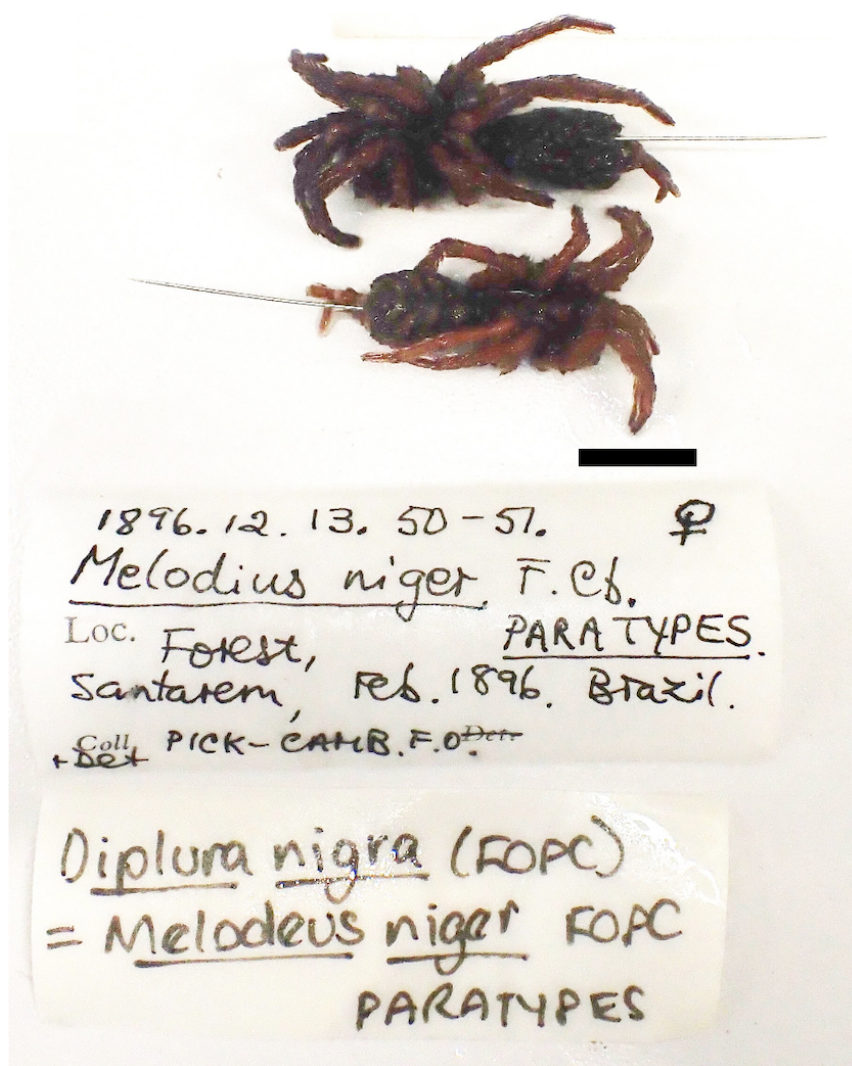 1896.12.13. 50-51. ♀
Melodius niger. F.Cb.
PARATYPES.
Loc. Forest,
Santarem, Feb. 1896. Brazil.
Coll. PICK-CAMB. F.O. Det.
+ Det
Diplura nigra (FOPC)
= Melodeus niger FOPC
PARATYPES